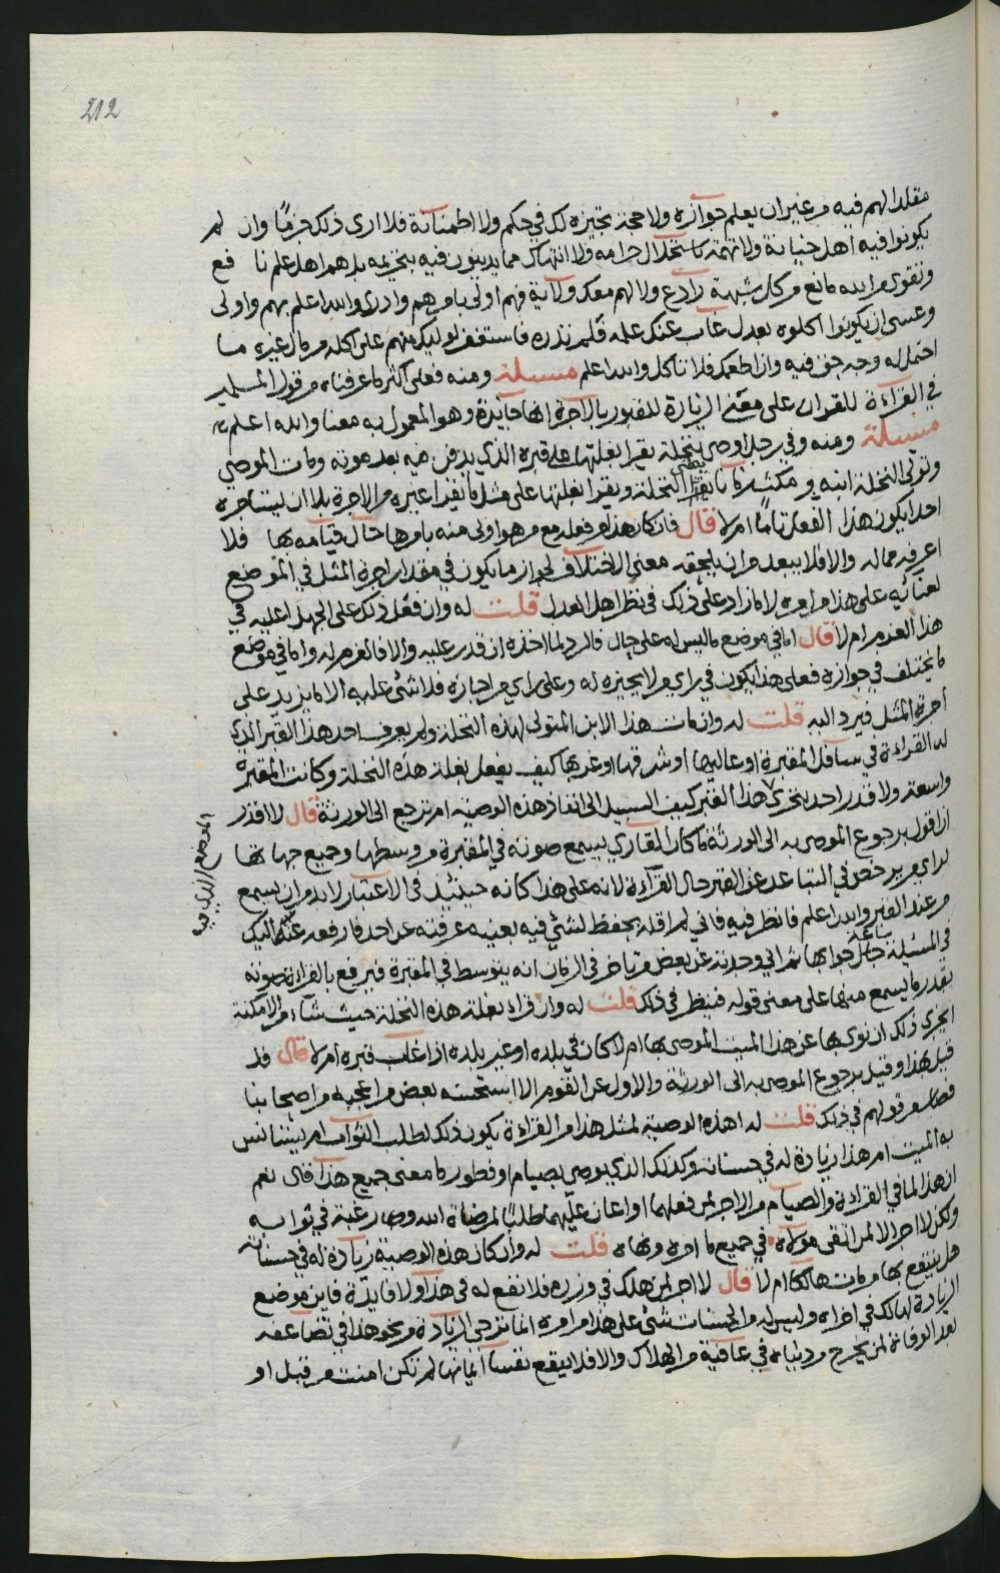 212
مقلدا لهم فيه من غير ان يعلم جوازه ولا حجة تجيزه لك في حكم ولا اطمئنانة فلا ارى ذلك حزمًا وان لم
يكونوا فيه اهل خيانة ولا تهمة باستحلال حرامه ولا انتهاك مما يدينون فيه بتحريمه بل هم اهل علم نافع
وتقوى من الله مانع من كل شبهة رادع ولا لهم معك ولاية فهم اولى بامرهم وادرى والله اعلم بهم واولى
وعسى ان يكونوا اكلوه بعدل غاب عنك علمه فلم تدره فاستغفر لوليك منهم على اكله من مال غيره ما
احتمل له وجه حق فيه وان اطعمك فلا تاكل والله اعلم مسئلة ومنه فعلى اكثر ما عرفناه من قول المسلمين
في القراءة للقران على معنى الزيارة للقبور بالاجرة انها جايزة وهو المعمول به معنا والله اعلم
مسئلة ومنه وفي رجل اوصى بنخلة يقرا بغلتها على قبره الذي يدفن فيه بعد موته ومات الموصي
وتولى النخلة ابنه و مكث زمانا يقرا النخلة ويقرا بغلتها على مثل ما يقرا غيره من الاجرة بلا ان يستاجره
احد ايكون هذا الفعل تامًا ام لا قال فان كان هذا من فعله مع من هو اولى منه بامرها حال قيامه بها فلا
اعرفه مما له والا فلا يبعد من ان يلحقه معنى الاختلاف لجواز ما يكون في مقدار اجرة المثل في الموضع
لعنائه على هذا من امره لا ما زاد على ذلك في نظر اهل العدل قلت له وان فعل ذلك على الجهل اعليه في
هذا الغرم ام لا قال اما في موضع ما ليس له على حال فالرد لما اخذه ان قدر عليه والا فالغرم له واما في موضع
ما يختلف في جوازه فعلى هذا يكون في راي من لا يجيزه له وعلى راي من اجازه فلا شئ عليه الا ما يزيد على
اجرة المثل فيرد اليه قلت له وان مات هذا الابن المتولي لهذه النخلة ولم يعرف احد هذا القبر الذي
له القراءة في سافل المقبرة او عاليها او شرقها او غربها كيف يفعل بغلة هذه النخلة وكانت المقبرة
واسعة ولا قدر احد يتحرى هذا القبر كيف السبيل الى انفاذ هذه الوصية ام ترجع الى الورثة قال لا اقدر
ان اقول برجوع الموصى به الى الورثة ما كان القاري يسمع صوته في المقبرة من وسطها وجميع جهاتها
لراي من يرخص في التباعد عن القبر حال القراءة لانه على هذا كانه حينئذ في الاعتبار لا بد من ان يسمع
من عند القبر والله اعلم فانظر فيه فاني لم اقله بحفظ لشئ فيه بعينه عرفته عن احد فارفعه عنه اليك
في المسئلة جوابها ثم اني وجدته عن بعض من تاخر في الزمان انه يتوسط في المقبرة فيرفع بالقراءة صوته
بقدر ما يسمع منها على معنى قوله فينظر في ذلك قلت له وان قراء بغلة هذه النخلة حيث شاء من الامكنة
ايجزي ذلك ان نوى بها عن هذا الميت الموصي بها ام لا كان في بلده او غير بلده اذا غاب قبره ام لا قال قد
قيل بهذا وقيل برجوع الموصى به الى الورثة والاول عن القوم الا استحسنه بعض من اعجبه من اصحابنا
فصار من قولهم في ذلك قلت له اهذه الوصية لمثل هذا من القراءة يكون ذلك لطلب الثواب ام يستانس
به الميت ام هذا زيادة له في حسناته وكذلك الذي يوصي بصيام او فطور ما معنى جميع هذا قال نعم
ان هذا لما في القراءة والصيام من الاجر لمن فعلهما او اعان عليهما طلبًا لمرضاة الله ومن رغبة في ثوابه
ولكن لا اجر الا لمن اتقى مولاه في جميع ما امره ونهاه قلت له وان كان هذه الوصية زيادة له في حسناته
هل ينتفع بها من مات هالكا ام لا قال لا اجر لمن هلك في وزره فلا نفع له في هذا ولا فايدة فاين موضع
الزيادة لهالك في اخراه وليس له من الحسنات شئ على هذا من امره انما ترجى الزيادة من نحو هذا في تضاعفه
بعد الوفاة لمن يخرج من دنياه في عافية من الهلاك والا فلا ينفع نفسا ايمانها لم تكن امنت من قبل او
الموضع الذي فيه